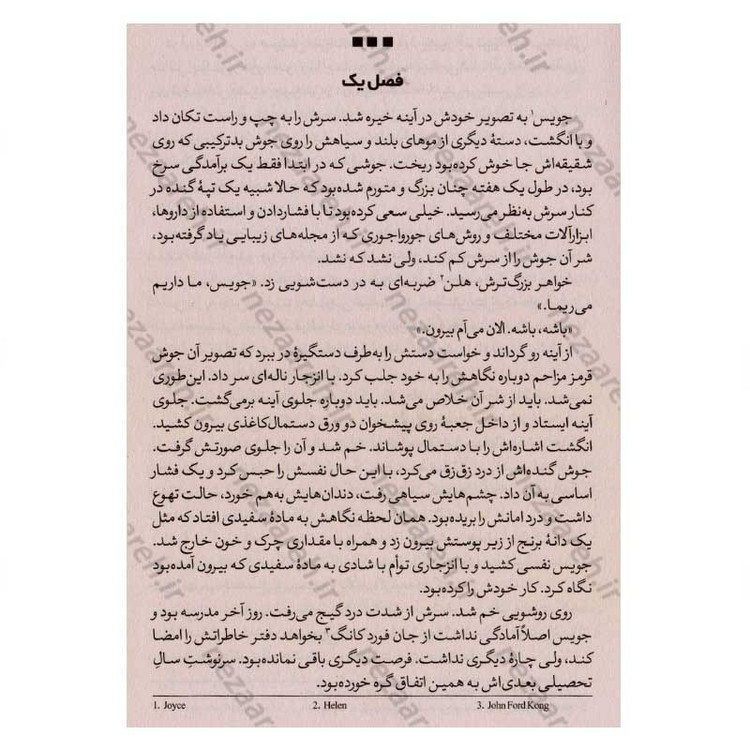 فصل یک
جویس¹ به تصویر خودش در آینه خیره شد. سرش را به چپ و راست تکان داد
و با انگشت، دستهٔ دیگری از موهای بلند و سیاهش را روی جوش بدترکیبی که روی
شقیقه‌اش جا خوش کرده‌بود ریخت. جوشی که در ابتدا فقط یک برآمدگی سرخ
بود، در طول یک هفته چنان بزرگ و متورم شده‌بود که حالا شبیه یک تپهٔ گنده در
کنار سرش به‌نظر می‌رسید. خیلی سعی کرده‌بود تا با فشاردادن و استفاده از داروها،
ابزارآلات مختلف و روش‌های جورواجوری که از مجله‌های زیبایی یاد گرفته‌بود،
شر آن جوش را از سرش کم کند، ولی نشد که نشد.
خواهر بزرگ‌ترش، هلن² ضربه‌ای به در دست‌شویی زد. «جویس، ما داریم
می‌ریما.»
«باشه، باشه. الان می‌آم بیرون.»
از آینه رو گرداند و خواست دستش را به‌طرف دستگیرهٔ در ببرد که تصویر آن جوش
قرمز مزاحم دوباره نگاهش را به خود جلب کرد. با انزجار ناله‌ای سر داد. این‌طوری
نمی‌شد. باید از شر آن خلاص می‌شد. باید دوباره جلوی آینه برمی‌گشت. جلوی
آینه ایستاد و از داخل جعبهٔ روی پیشخوان دو ورق دستمال‌کاغذی بیرون کشید.
انگشت اشاره‌اش را با دستمال پوشاند. خم شد و آن را جلوی صورتش گرفت.
جوش گنده‌اش از درد زق‌زق می‌کرد، با این حال نفسش را حبس کرد و یک فشار
اساسی به آن داد. چشم‌هایش سیاهی رفت، دندان‌هایش به‌هم خورد، حالت تهوع
داشت و درد امانش را بریده‌بود. همان لحظه نگاهش به مادهٔ سفیدی افتاد که مثل
یک دانهٔ برنج از زیر پوستش بیرون زد و همراه با مقداری چرک و خون خارج شد.
جویس نفسی کشید و با انزجاری توأم با شادی به مادهٔ سفیدی که بیرون آمده‌بود
نگاه کرد. کار خودش را کرده‌بود.
روی روشویی خم شد. سرش از شدت درد گیج می‌رفت. روز آخر مدرسه بود و
جویس اصلاً آمادگی نداشت از جان فورد کانگ³ بخواهد دفتر خاطراتش را امضا
کند، ولی چارهٔ دیگری نداشت. فرصت دیگری باقی نمانده‌بود. سرنوشتِ سالِ
تحصیلی بعدی‌اش به همین اتفاق گره خورده‌بود.
1. Joyce 2. Helen 3. John Ford Kong
nezaareh.ir